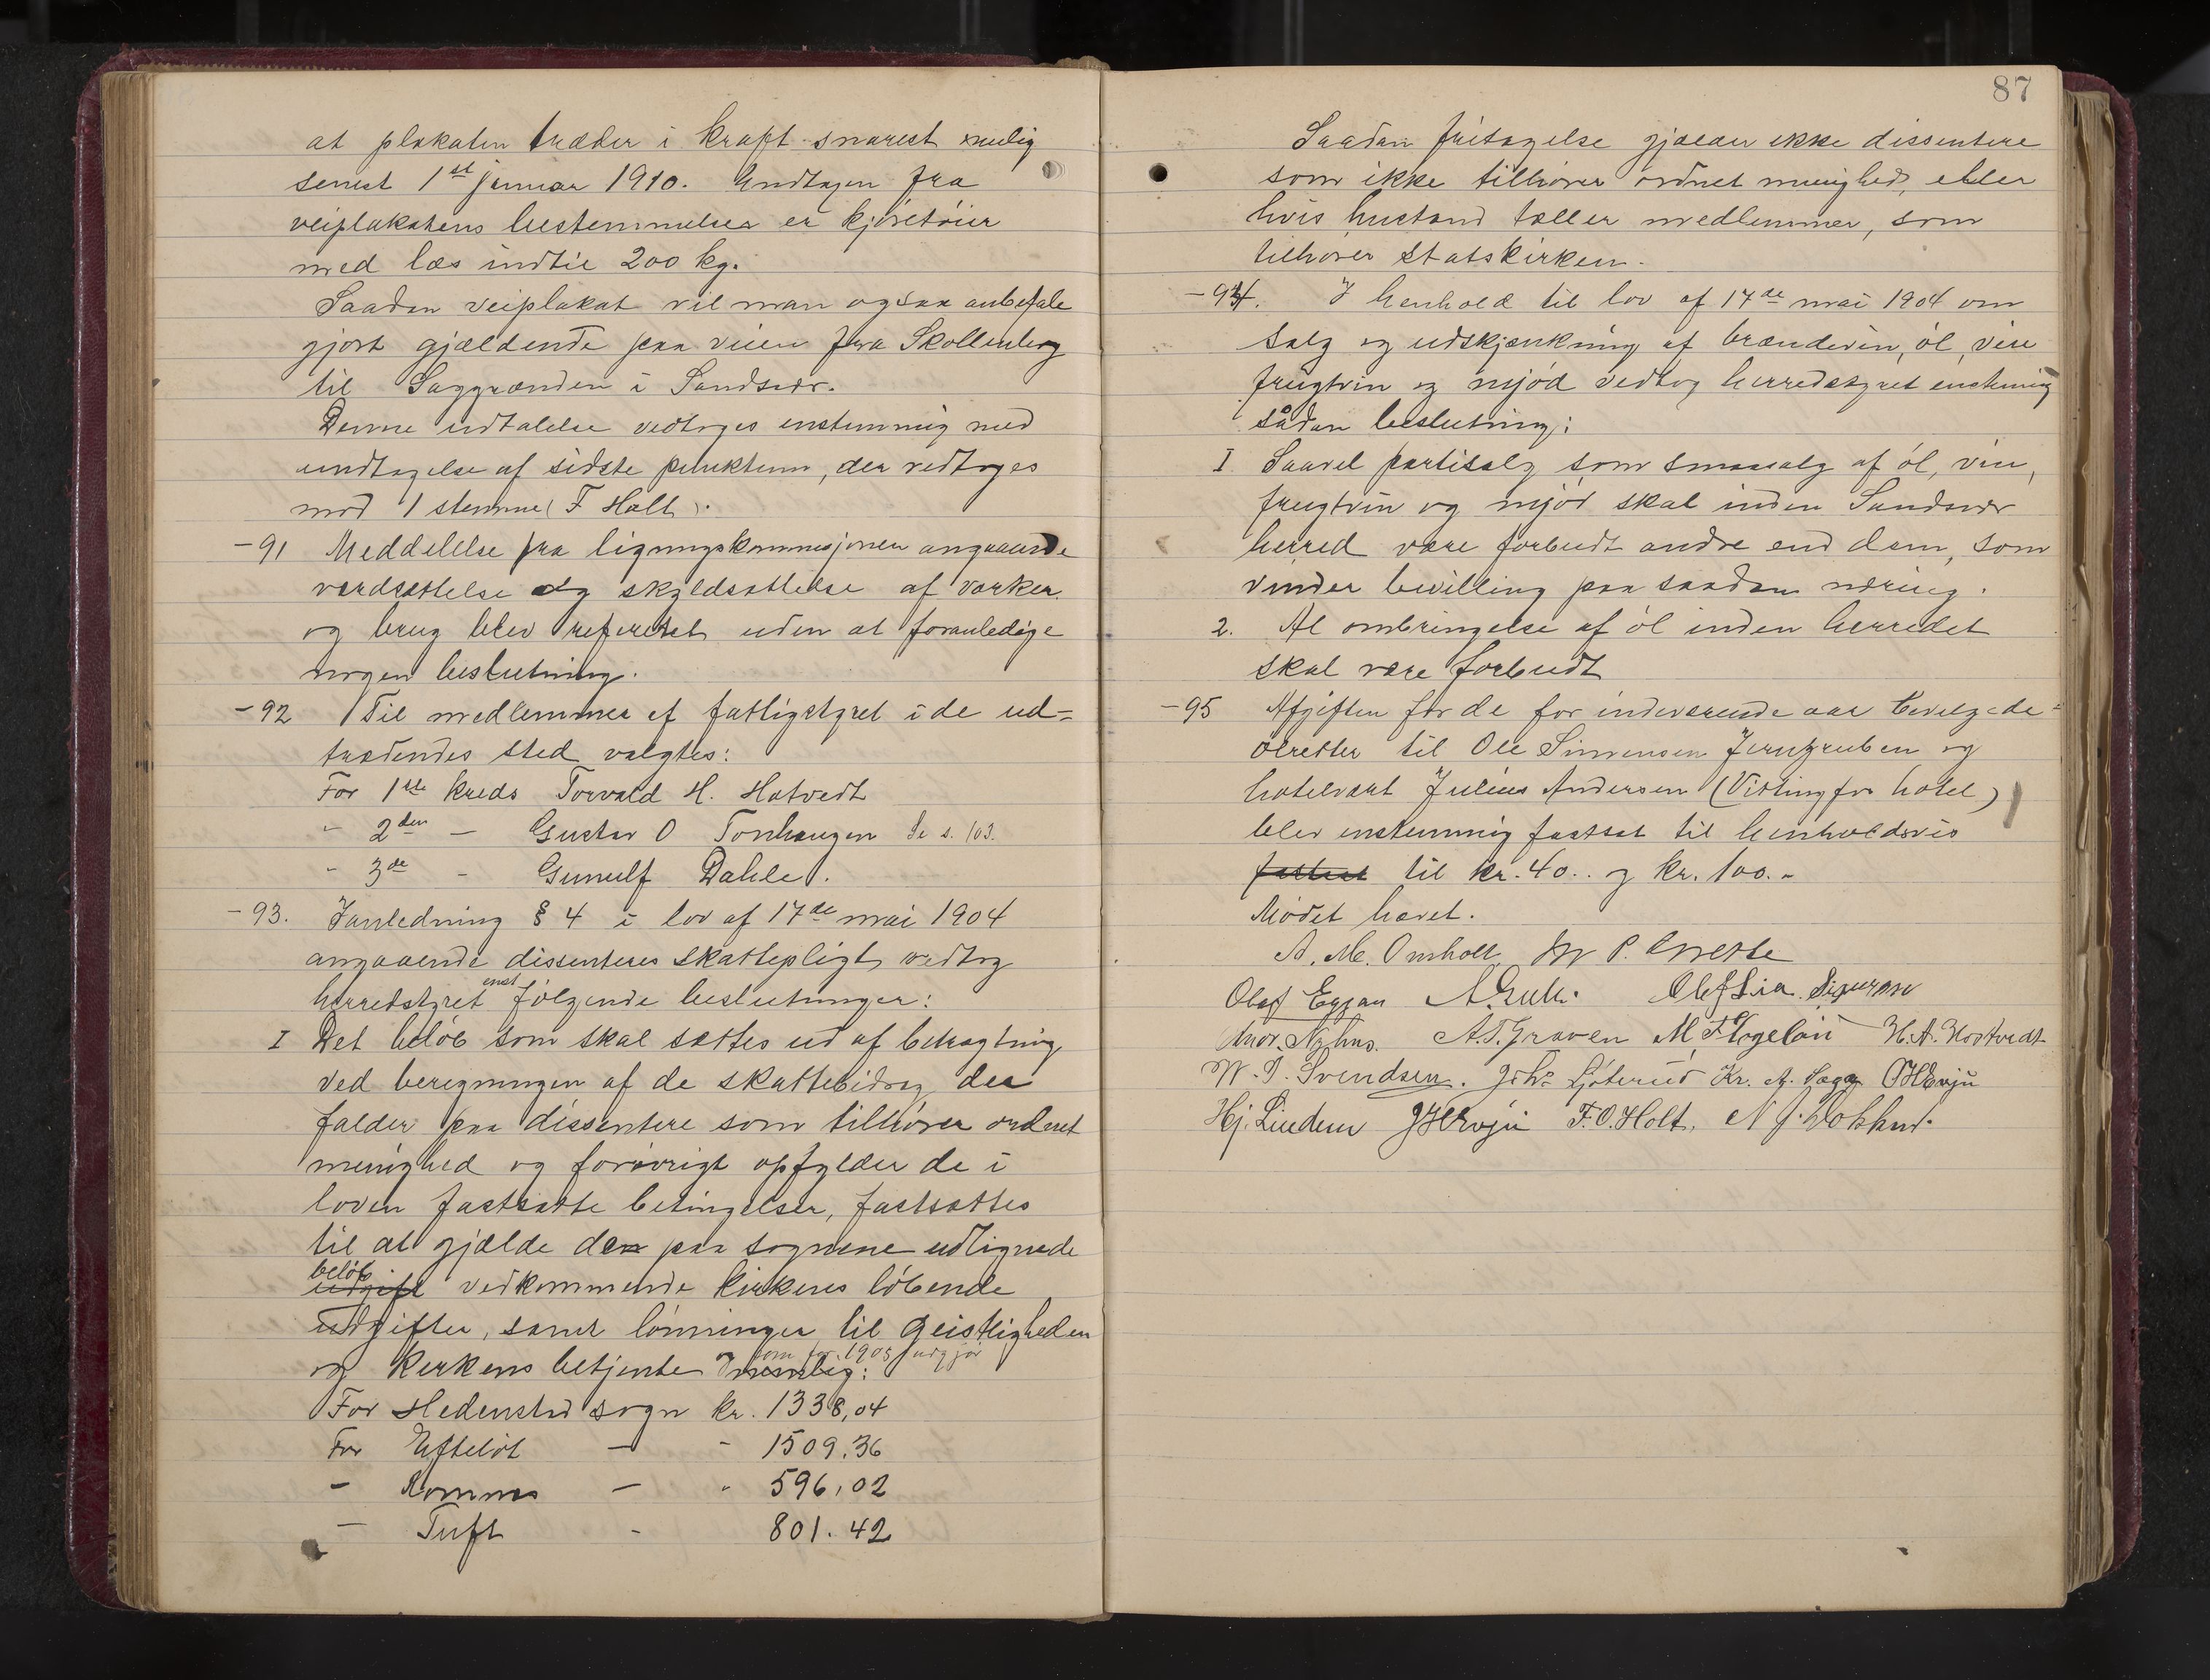 at plakaten træder i kraft snarest mulig
senest 1ste januar 1910. Undtagen fra
veiplakatens bestemmelser er kjøretøier
med læs indtil 200 kg.
Saadan veiplakat vil man ogsaa anbefale
gjort gjældende paa veien fra Skollenborg
til Saggrænden i Sandsvær.
Denne udtalelse vedtoges enstemmig med
undtagelse af sidste punktum, der vedtoges
mod 1 stemme (F Holt).
- 91 Meddelelse fra ligningskommisjonen angaaende
værdsættelse og skyldsættelse af værker
og brug blev referert uden at foranledige
nogen beslutning.
- 92 Til medlemmer af fattigstyret i de ud=
trædendes sted valgtes:
For 1ste kreds Torvald H. Hotvedt
" 2den — Gustav O Tonhaugen Se s. 103.
" 3de - Gunulf Dahle.
- 93. I anledning § 4 i lov af 17de mai 1904
angaaende dissenteres skattepligt vedtog
herredstyret enst følgende beslutninger:
I Det beløb som skal sættes ud af betragtning
ved beregningen af de skattebidrag der
falder paa dissentere som tilhører ordnet
menighed og forøvrigt opfylder de i
loven fastsatte betingelser, fastsættes
til at gjælde de paa sognene udlignede
beløb
udgift vedkommende kirkens løbende
udgifter, samt lønninger til geistligheden
som for 1908 udgjør
og kirkens betjente nemlig:
For Hedenstad sogn kr. 1338,04
For Efteløt — - 1509.36
- Komnes — - 596,02
- Tuft - 801.42
87
Saadan fritagelse gjælder ikke dissentere
som ikke tilhører ordnet menighed, eller
hvis hustand tæller medlemmer, som
tilhører statskirken.
- 94. I henhold til lov af 17de mai 1904 om
salg og udskjænkning af brændevin, øl, vin
frugtvin og mjød vedtog herredstyret enstemmig
sådan beslutning:
I Saavel partisalg som smaasalg af øl, vin,
frugtvin og mjød skal inden Sandsvær
herred være forbudt andre end dem, som
vinder bevilling paa saadan næring.
2. Al ombringelse af øl inden herredet
skal være forbudt
- 95 Afgiften for de for indeværende aar bevilgede
ølretter til Ole Simensen Jerngruben og
hotelvært Julius Andersen (Vittingfos hotel)
blev enstemmig fastsat til henholdsvis
fastsat til kr. 40.. og kr. 100.-
Mødet hævet.
A. M. Omholt
Olaf Eggan Olaf Lia
Andr. Nyhus. A. T. Graven M. Fløgelon H. A. Hostvedt
W. I. Svendsen. Kr. A. Sagg O H Evju
Hj. Linden J H Evju F. O. Holt.